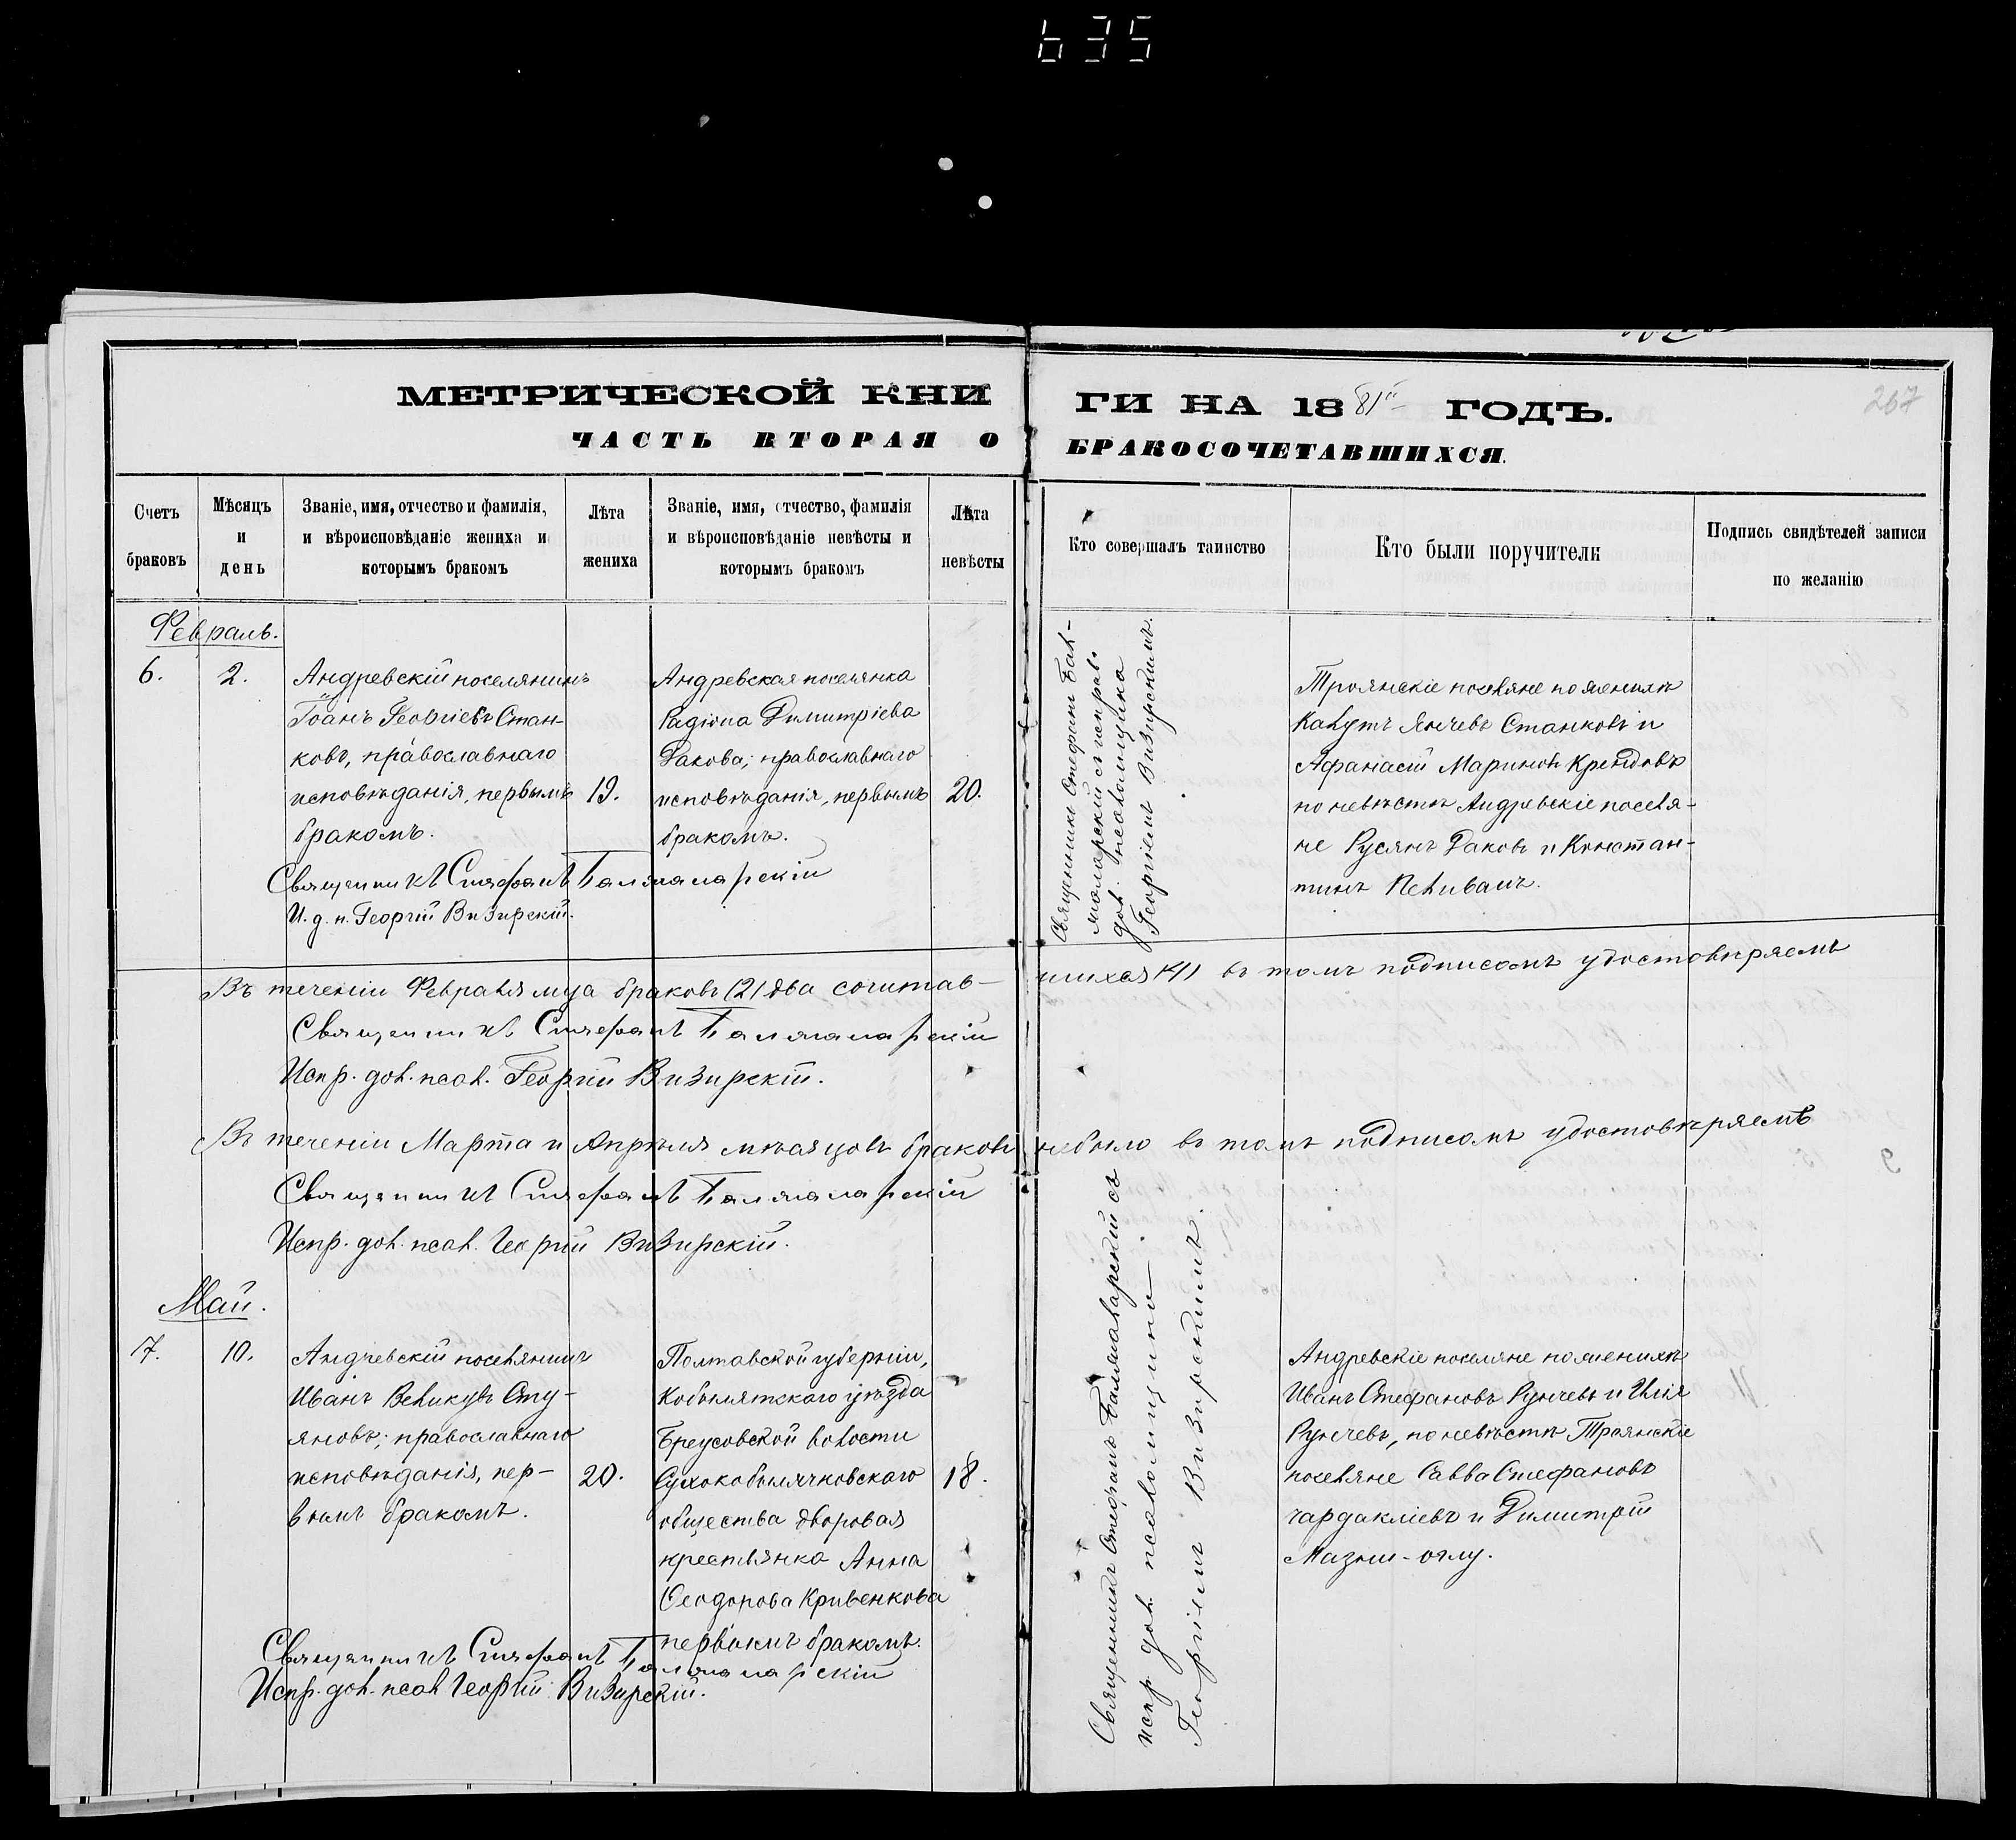 635
МЕТРИЧЕСКОЙ КНИГИ НА 1881й ГОДЪ.
267
ЧАСТЬ ВТОРАЯ О БРАКОСОЧЕТАВШИХСЯ.
Счетъ браковъ
Мѣсяцъ и день
Званіе, имя, отчество и фамилія,
и вѣроисповѣданіе жениха и
которымъ бракомъ
Лѣта жениха
Званіе, имя, отчество, фамилія
и вѣроисповѣданіе невѣсты и
которымъ бракомъ
Лѣта невѣсты
Кто совершалъ таинство
Кто были поручители
Подпись свидѣтелей записи
по желанію
Февраль.
6.
2.
Андревскій поселянинъ
Іоанъ Георгіевъ Стан-
ковъ, православнаго
исповѣданія, первымъ
бракомъ.
19.
Андревская поселянка
Димитріева
Ракова; православнаго
исповѣданія, первымъ
бракомъ.
20.
Священникъ Стефанъ Бал-
жаларскій съ исправ.
дол. псаломщика
Георгіемъ Визирскимъ.
Троянскіе поселяне по женихѣ
Янчевъ Станковъ и
Афанасій Мариновъ
по невѣстѣ Андревскіе поселя-
не Русянъ Раковъ и Констан-
тинъ Пеливанъ.
Священникъ Стефанъ Балжаларскій
И. д. п. Георгій Визирскій.
Въ теченіи Февраля мца браковъ (2) два сочитав-шихся въ томъ подписомъ удостовѣряемъ
Священникъ Стефанъ Балжаларскій
Испр. дол. псал. Георгій Визирскій.
Въ теченіи Марта и Апрѣля мѣсяцовъ браковъ небыло въ томъ подписомъ удостовѣряемъ
Священникъ Стефанъ Балжаларскій
Испр. дол. псал. Георгій Визирскій.
Май.
7.
10.
Андревскій поселянинъ
Иванъ Великувъ Сту-
яновъ; православнаго
исповѣданія, пер-
вымъ бракомъ.
20.
Полтавской губерніи,
Кобылятскаго уѣзда
Бреусовской волости
Сухокобылячковскаго
общества дворовая
крестьянка Анна
Ѳеодорова Кривенкова
первымъ бракомъ.
18.
Священникъ Стефанъ Балжаларскій съ
испр. дол. псаломщика
Георгіемъ Визирскимъ.
Андревскіе поселяне по женихѣ
Иванъ Стефановъ Рунчевъ и Илія
Рунчевъ, по невѣстѣ Троянскіе
поселяне Савва Стефановъ
чардакліевъ и Димитрій
Мазни-оглу.
Священникъ Стефанъ Балжаларскій
Испр. дол. псал Георгій Визирскій.